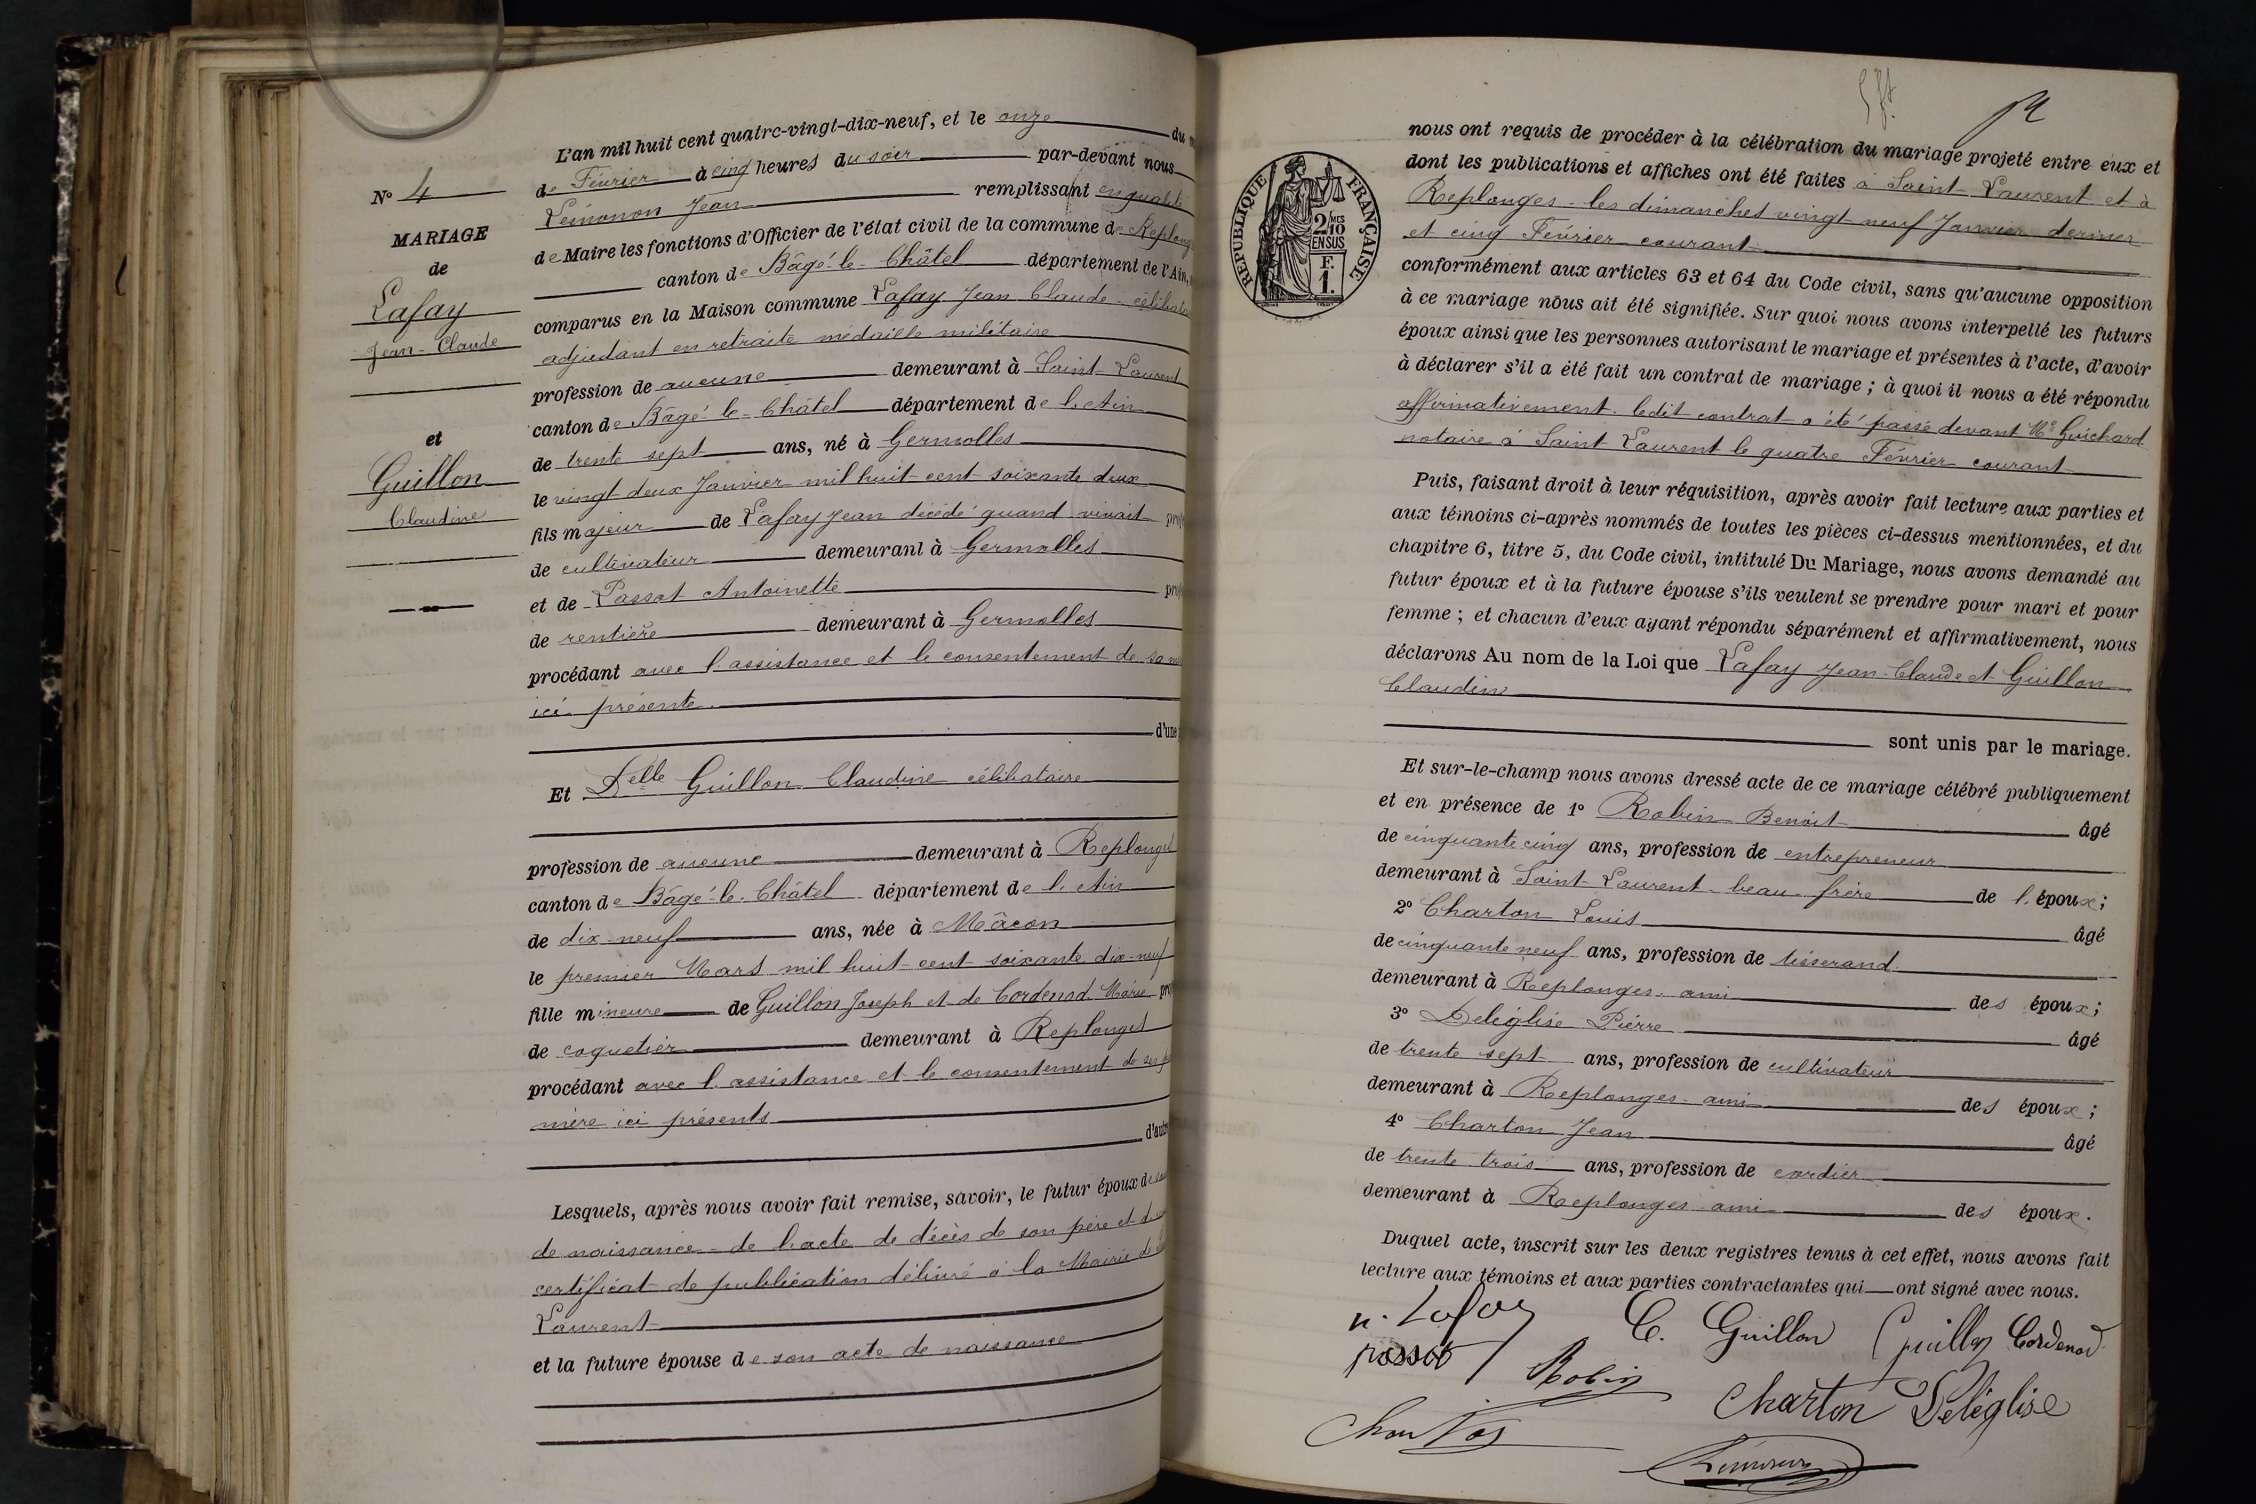 L'an mil huit cent quatre-vingt-dix-neuf, et le onze du
de Février à cinq heures du soir par-devant nous
Lémonon Jean remplissant en qualité
de Maire les fonctions d'Officier de l'état civil de la commune de Replong
canton de Bâgé-le-Châtel département de l'Ain,
comparus en la Maison commune Lafay Jean Claude célibatai
adjudant en retraite médaille militaire
profession de aucune demeurant à Saint-Laurent
canton de Bâgé-le-Châtel département de l'Ain
de trente sept ans, né à Germolles
le vingt deux Janvier mil huit cent soixante deux
fils majeur de Lafay Jean décédé quand vivait
de cultivateur demeurant à Germolles
et de Passot Antoinette
de rentière demeurant à Germolles
procédant avec l'assistance et le consentement de sa
ici présente
d'une
Et Delle Guillon Claudine célibataire
profession de aucune demeurant à Replonges
canton de Bâgé-le-Châtel département de l'Ain
de dix-neuf ans, née à Mâcon
le premier Mars mil huit cent soixante dix-neuf
fille mineure de Guillon Joseph et de Cordenod Marie
de coquetier demeurant à Replonges
procédant avec l'assistance et le consentement de ses
mère ici présents
d'autre
Lesquels, après nous avoir fait remise, savoir, le futur époux de
de naissance - de l'acte de décès de son père et
certificat de publication délivré à la Mairie de
Laurent
et la future épouse de son acte de naissance
No 4
MARIAGE
de
Lafay
Jean-Claude
et
Guillon
Claudine
RÉPUBLIQUE FRANÇAISE
2/10 MES
EN SUS
F.
1.
nous ont requis de procéder à la célébration du mariage projeté entre eux et
dont les publications et affiches ont été faites à Saint-Laurent et à
Replonges les dimanches vingt neuf Janvier dernier
et cinq Février courant
conformément aux articles 63 et 64 du Code civil, sans qu'aucune opposition
à ce mariage nous ait été signifiée. Sur quoi nous avons interpellé les futurs
époux ainsi que les personnes autorisant le mariage et présentes à l'acte, d'avoir
à déclarer s'il a été fait un contrat de mariage ; à quoi il nous a été répondu
affirmativement. ledit contrat a été passé devant Me Guichard
notaire à Saint Laurent le quatre Février courant
Puis, faisant droit à leur réquisition, après avoir fait lecture aux parties et
aux témoins ci-après nommés de toutes les pièces ci-dessus mentionnées, et du
chapitre 6, titre 5, du Code civil, intitulé Du Mariage, nous avons demandé au
futur époux et à la future épouse s'ils veulent se prendre pour mari et pour
femme ; et chacun d'eux ayant répondu séparément et affirmativement, nous
déclarons Au nom de la Loi que Lafay Jean-Claude et Guillon
Claudine
sont unis par le mariage.
Et sur-le-champ nous avons dressé acte de ce mariage célébré publiquement
et en présence de 1º Robin Benoit âgé
de cinquante cinq ans, profession de entrepreneur
demeurant à Saint-Laurent beau-frère de l'époux ;
2º Charton Louis âgé
de cinquante neuf ans, profession de tisserand
demeurant à Replonges ami des époux ;
3º Deléglise Pierre âgé
de trente sept ans, profession de cultivateur
demeurant à Replonges ami des époux ;
4º Charton Jean âgé
de trente trois ans, profession de cordier
demeurant à Replonges ami des époux.
Duquel acte, inscrit sur les deux registres tenus à cet effet, nous avons fait
lecture aux témoins et aux parties contractantes qui ont signé avec nous.
Lafay C. Guillon Guillon Cordenod
passot Robin Charton Deléglise
Charton
Lémonon